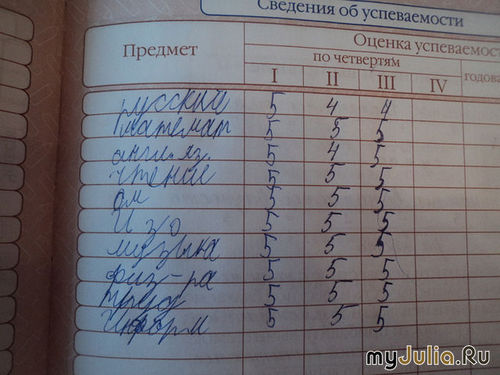 Сведения об успеваемости
Предмет Оценка успеваемост
по четвертям годова
I II III IV
русский 5 4 4
математ 5 5 5
англ. яз. 5 4 5
чтение 5 5 5
ом 5 5 5
Изо 5 5 5
музыка 5 5 5
физ-ра 5 5 5
труд 5 5 5
Информ 5 5 5
myJulia.Ru